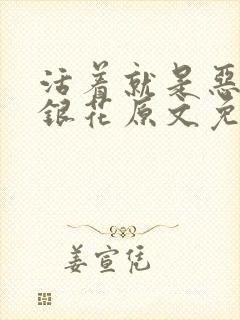 活着就是恶
銀花原文免
姜宣凭